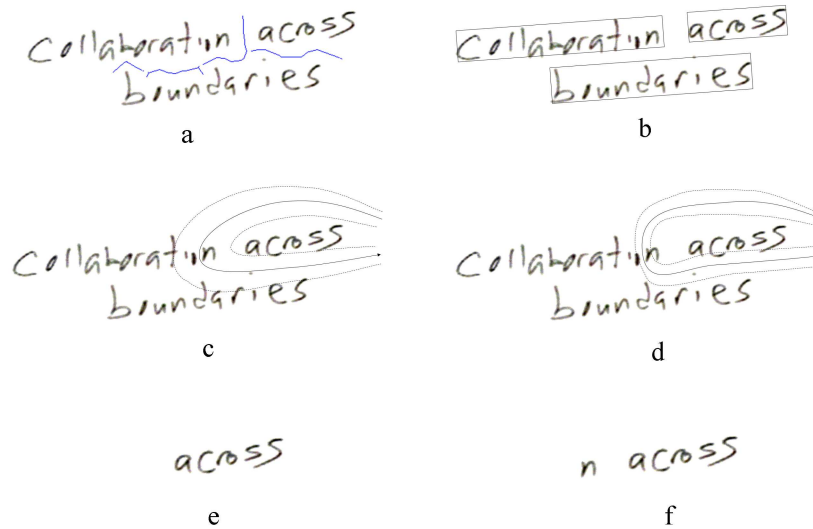 Collaboration across
boundaries
a
Collaboration across
boundaries
b
Collaboration across
boundaries
c
Collaboration across
boundaries
d
across
e
n across
f